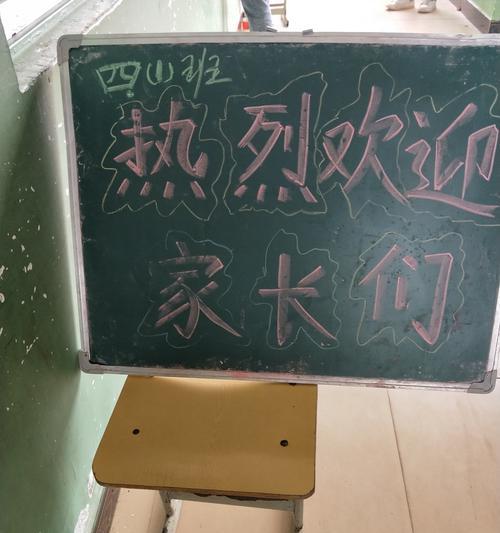 四(1)班
热烈欢迎
家长们